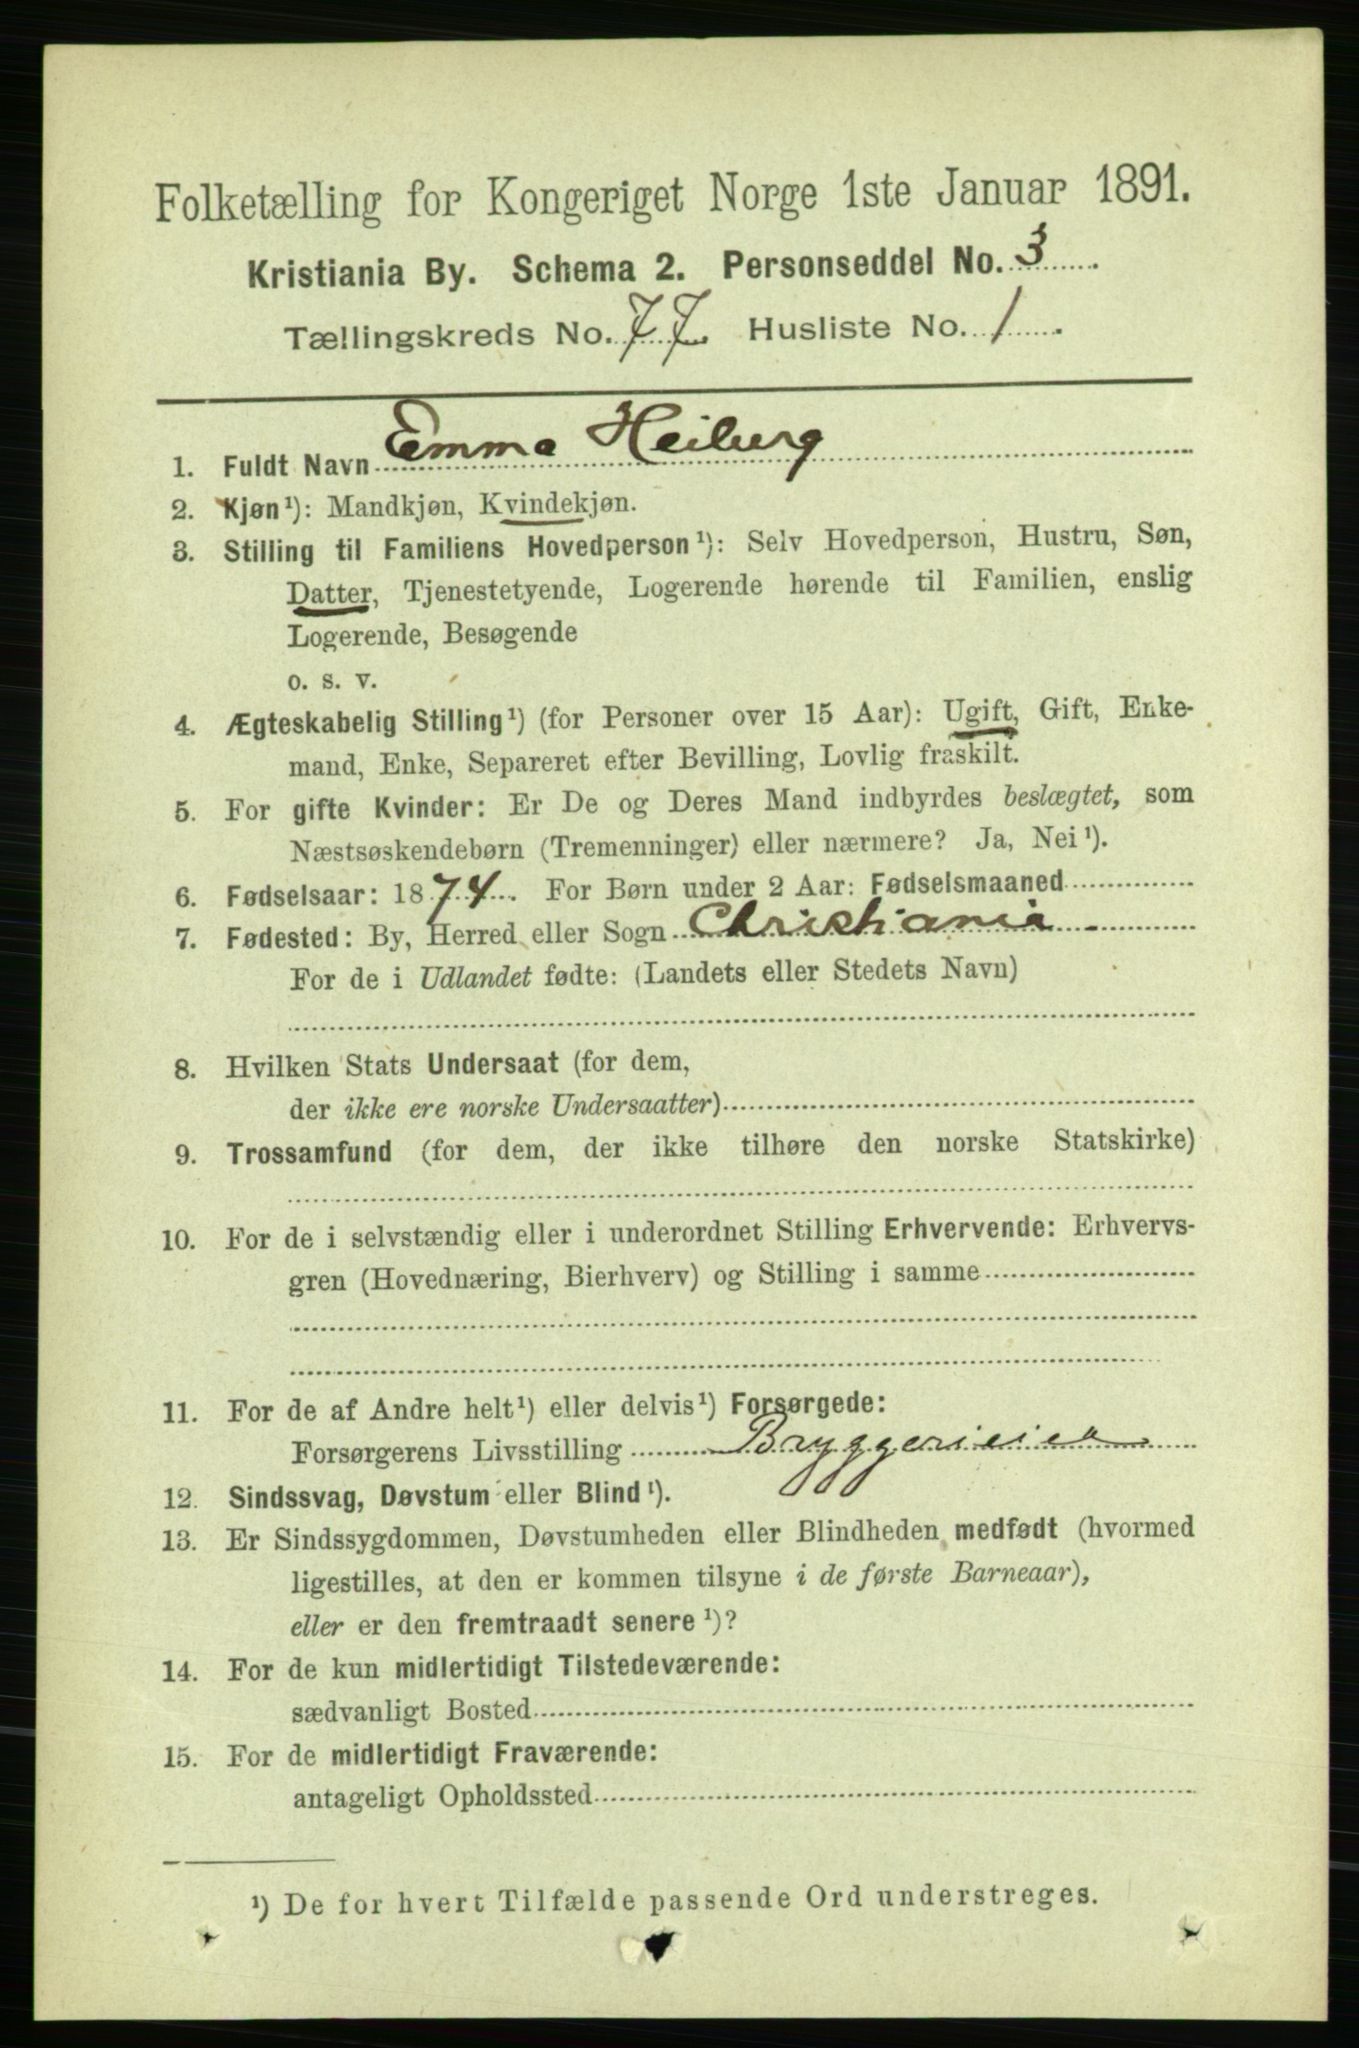 Folketælling for Kongeriget Norge 1ste Januar 1891.
Kristiania By. Schema 2. Personseddel No. 3
Tællingskreds No. 77. Husliste No. 1.
1. Fuldt Navn Emma Heiberg
2. Kjøn¹): Mandkjøn, Kvindekjøn.
3. Stilling til Familiens Hovedperson¹): Selv Hovedperson, Hustru, Søn,
Datter, Tjenestetyende, Logerende hørende til Familien, enslig
Logerende, Besøgende
o. s. v.
4. Ægteskabelig Stilling¹) (for Personer over 15 Aar): Ugift, Gift, Enke-
mand, Enke, Separeret efter Bevilling, Lovlig fraskilt.
5. For gifte Kvinder: Er De og Deres Mand indbyrdes beslægtet, som
Næstsøskendebørn (Tremenninger) eller nærmere? Ja, Nei¹).
6. Fødselsaar: 1874. For Børn under 2 Aar: Fødselsmaaned
7. Fødested: By, Herred eller Sogn Christiania
For de i Udlandet fødte: (Landets eller Stedets Navn)
8. Hvilken Stats Undersaat (for dem,
der ikke ere norske Undersaatter)
9. Trossamfund (for dem, der ikke tilhøre den norske Statskirke)
10. For de i selvstændig eller i underordnet Stilling Erhvervende: Erhvervs-
gren (Hovednæring, Bierhverv) og Stilling i samme
11. For de af Andre helt¹) eller delvis¹) Forsørgede:
Forsørgerens Livsstilling Bryggerieier
12. Sindssvag, Døvstum eller Blind¹).
13. Er Sindssygdommen, Døvstumheden eller Blindheden medfødt (hvormed
ligestilles, at den er kommen tilsyne i de første Barneaar),
eller er den fremtraadt senere¹)?
14. For de kun midlertidigt Tilstedeværende:
sædvanligt Bosted
15. For de midlertidigt Fraværende:
antageligt Opholdssted
¹) De for hvert Tilfælde passende Ord understreges.